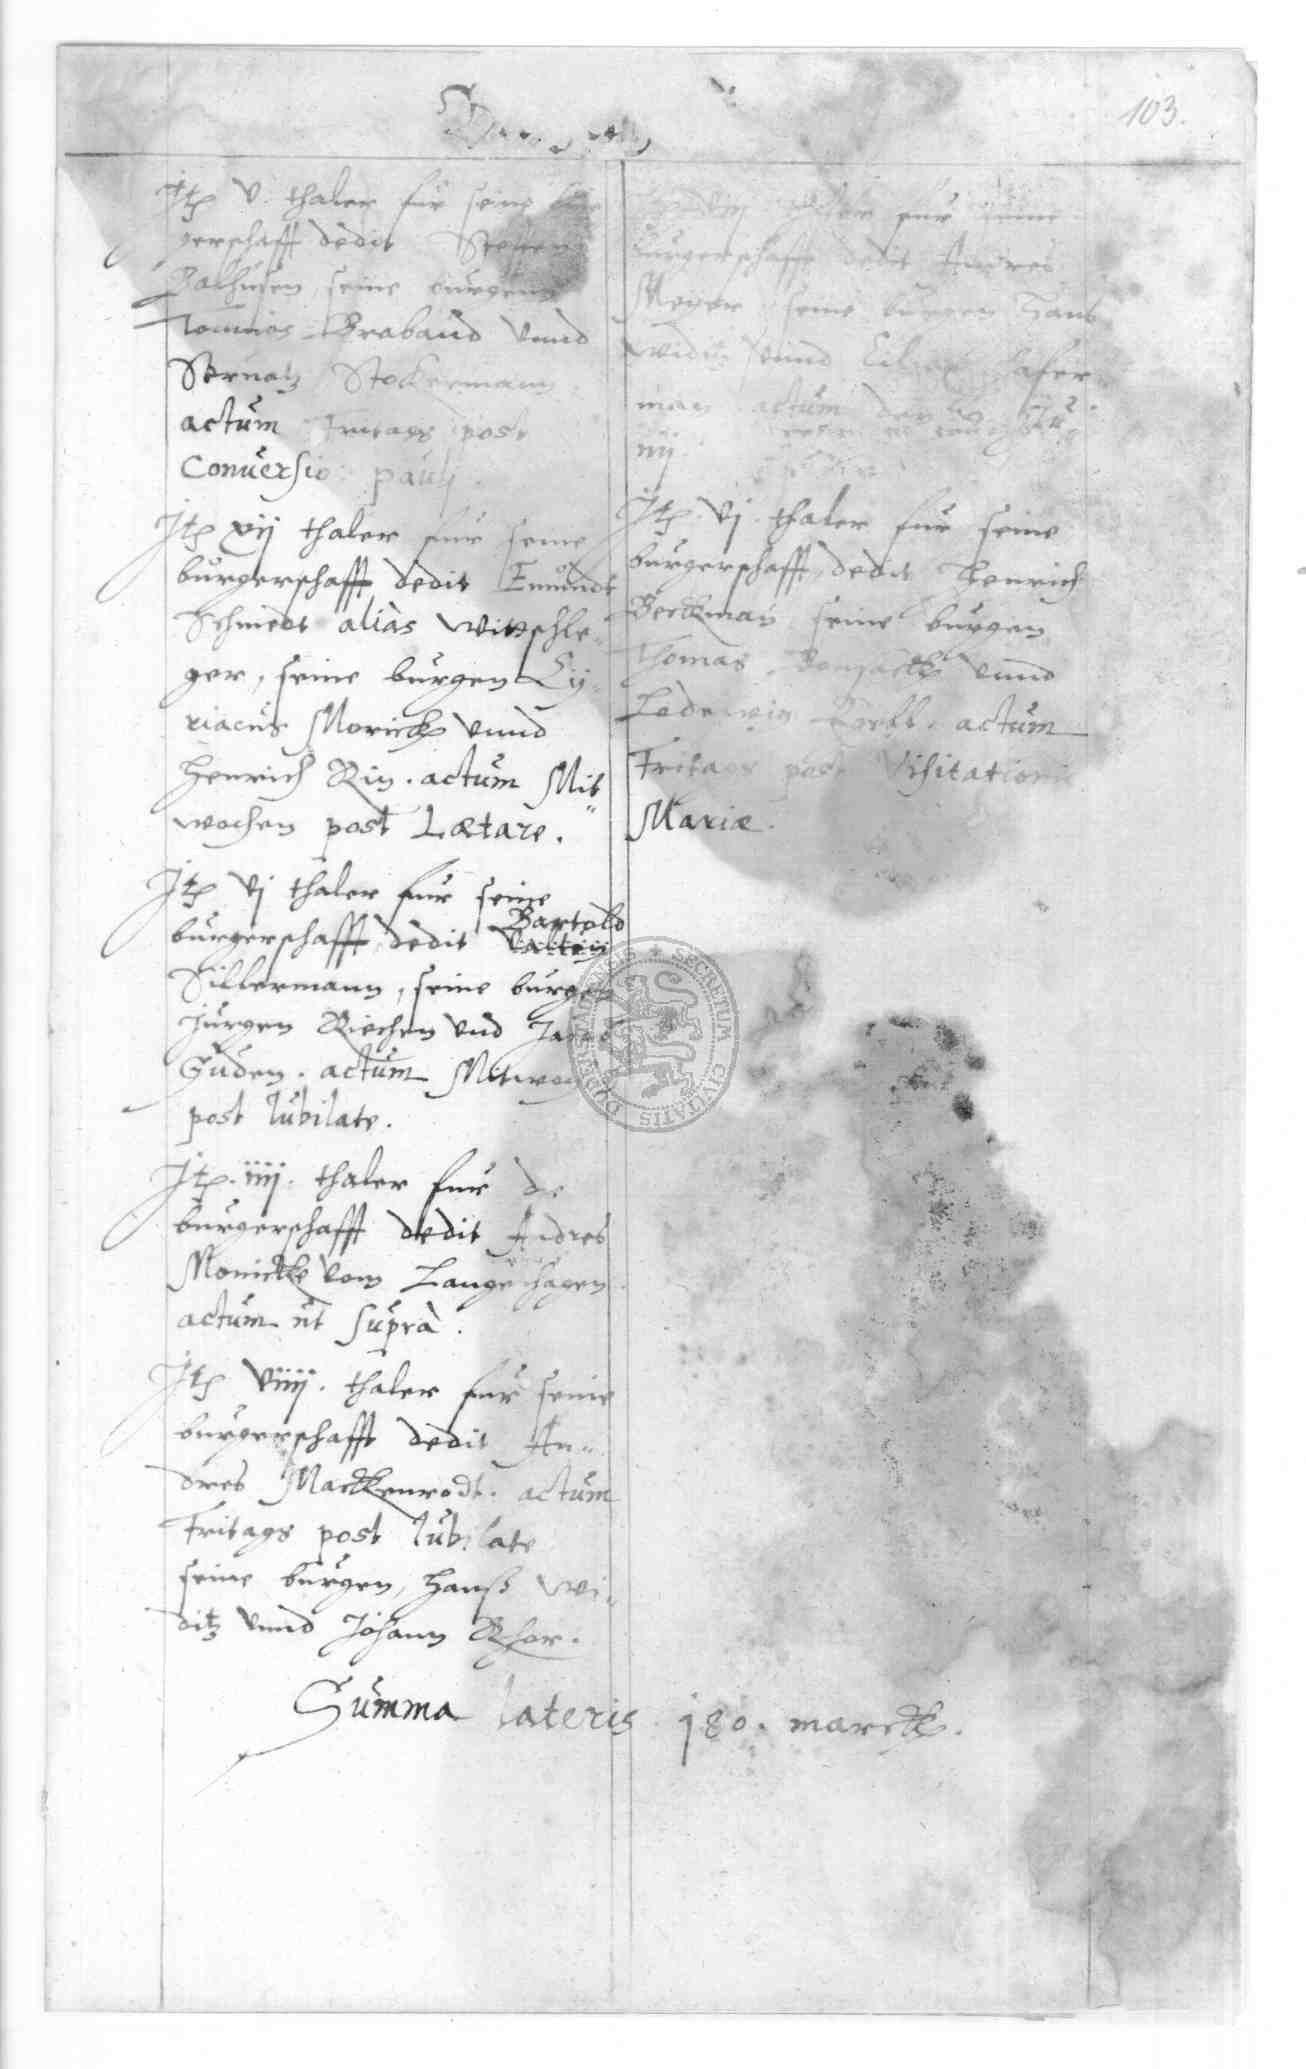 103.
Itz v. thaler fur seine bur
gerschafft dedit Steffen
Balhusen, seine burgen
Tonnies Braband vnnd
Stockermann
actum Fritags post
Conuersio: pauli
Itz xij thaler fur seine
burgerschafft dedit Emundt
Schmedt alias Wittschle-
ger, seine burgen Cy-
riacus Morick vnnd
Henrich Rin. actum Mit
wochen post Lætare.
Itz vj thaler fur seine
Bartold
burgerschafft dedit Valtin
Sillermann, seine burgen
Jurgen Riechen vnd Jacob
Guden. actum Mitwoch
post Iubilate.
Itz. iiij. thaler fur de
burgerschafft dedit Andres
Monickke vom Langenhagen
actum ut suprà.
Itz viiij. thaler fur seine
burgerschafft dedit An-
dres Mackenrodt. actum
Fritags post Iubilate
seine burgen, Hanß Wi-
ditz vnnd Johann Rhor.
thaler fur seine
burgerschafft dedit Andres
Meyer seine burgen Hans
vnnd
man actum
iiij.
Itz. vj. thaler fur seine
burgerschafft, dedit Henrich
Berckman seine burgen
Thomas vnnd
Lodewig actum
Fritags post Visitationis
Mariæ.
Summa lateris 180. marck.
SECRETUM CIVITATIS DUDERSTADENSIS